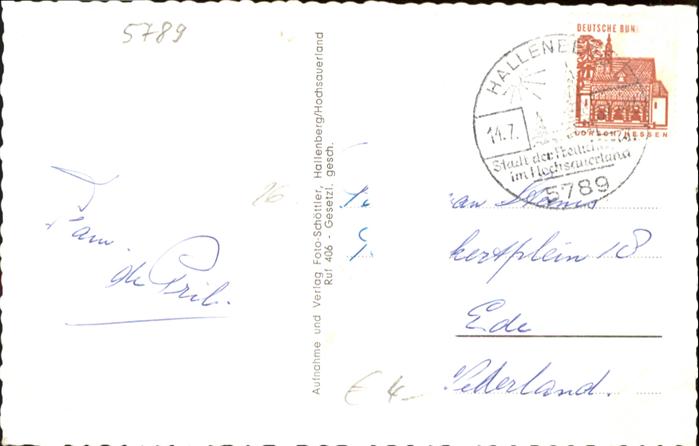 5789
Fam.
de Prib.
Aufnahme und Verlag Foto-Schöttler, Hallenberg/Hochsauerland
Ruf 406 - Gesetzl. gesch.
DEUTSCHE BUN
HESSEN
HALLENBE
14.7.
Stadt der
im Hochsauerland
5789
kertplein 18
Ede
Nederland.
€ 4-